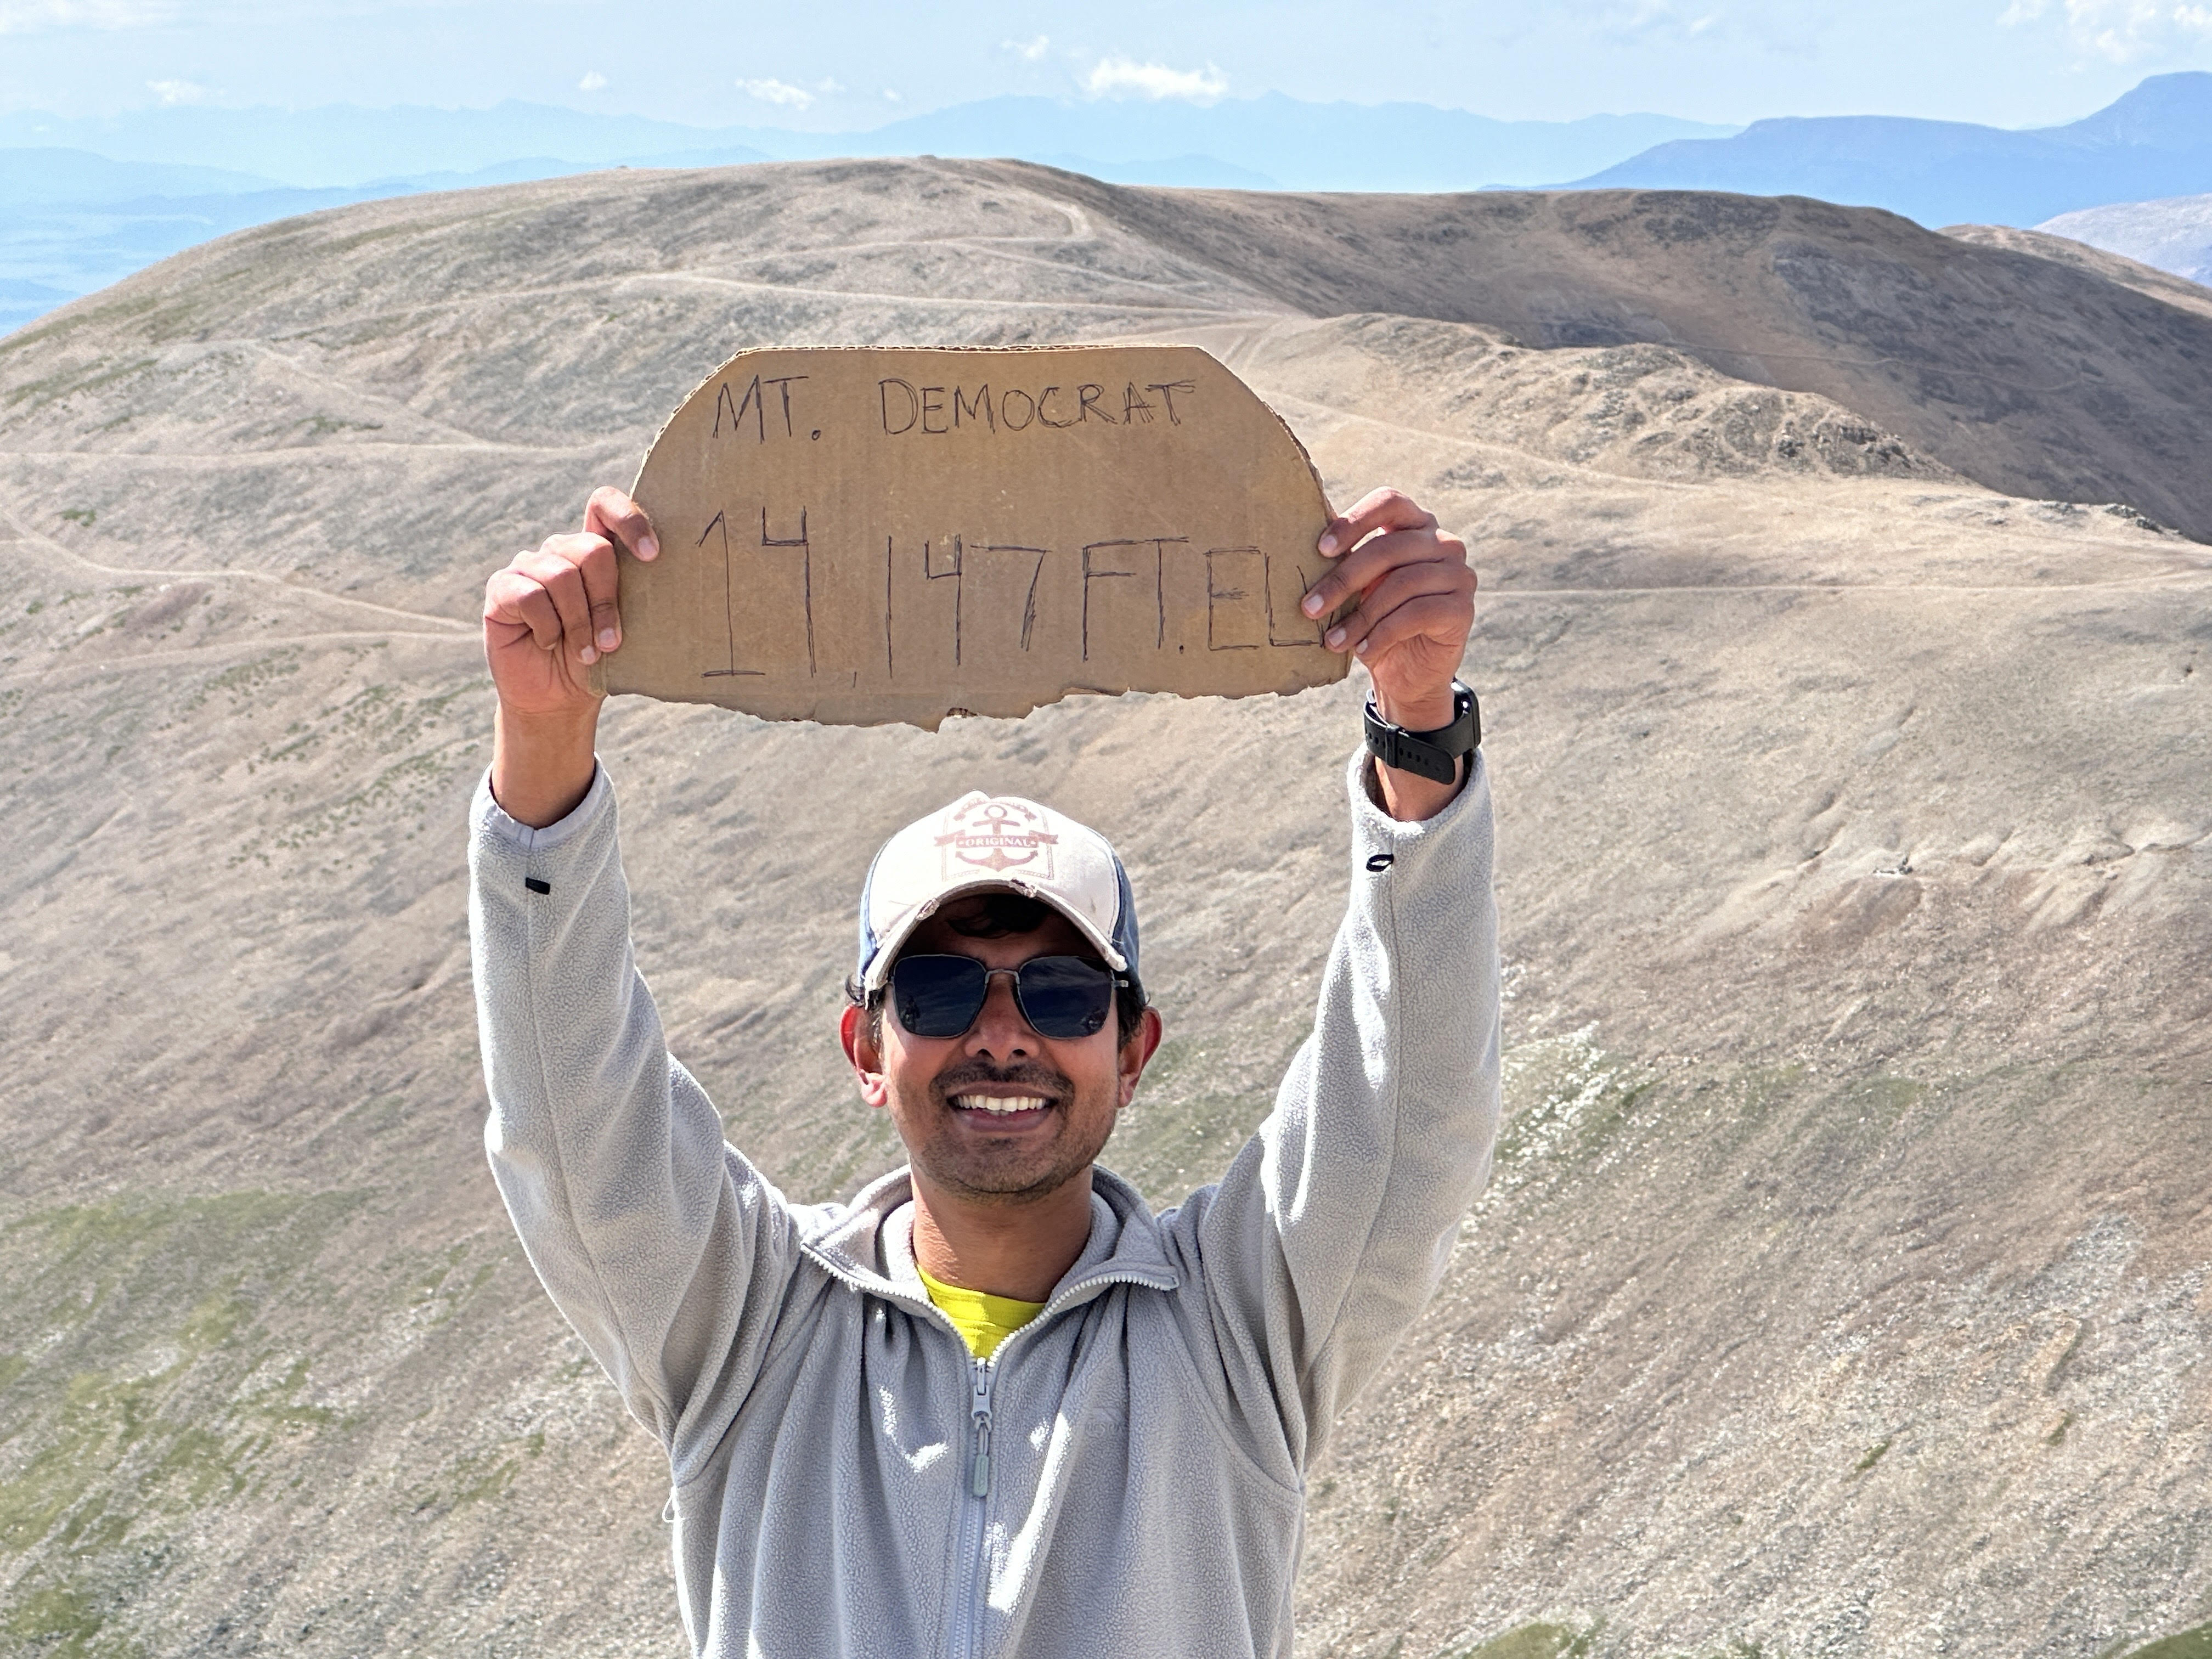 MT. DEMOCRAT
14,147 FT. ELV
ORIGINAL